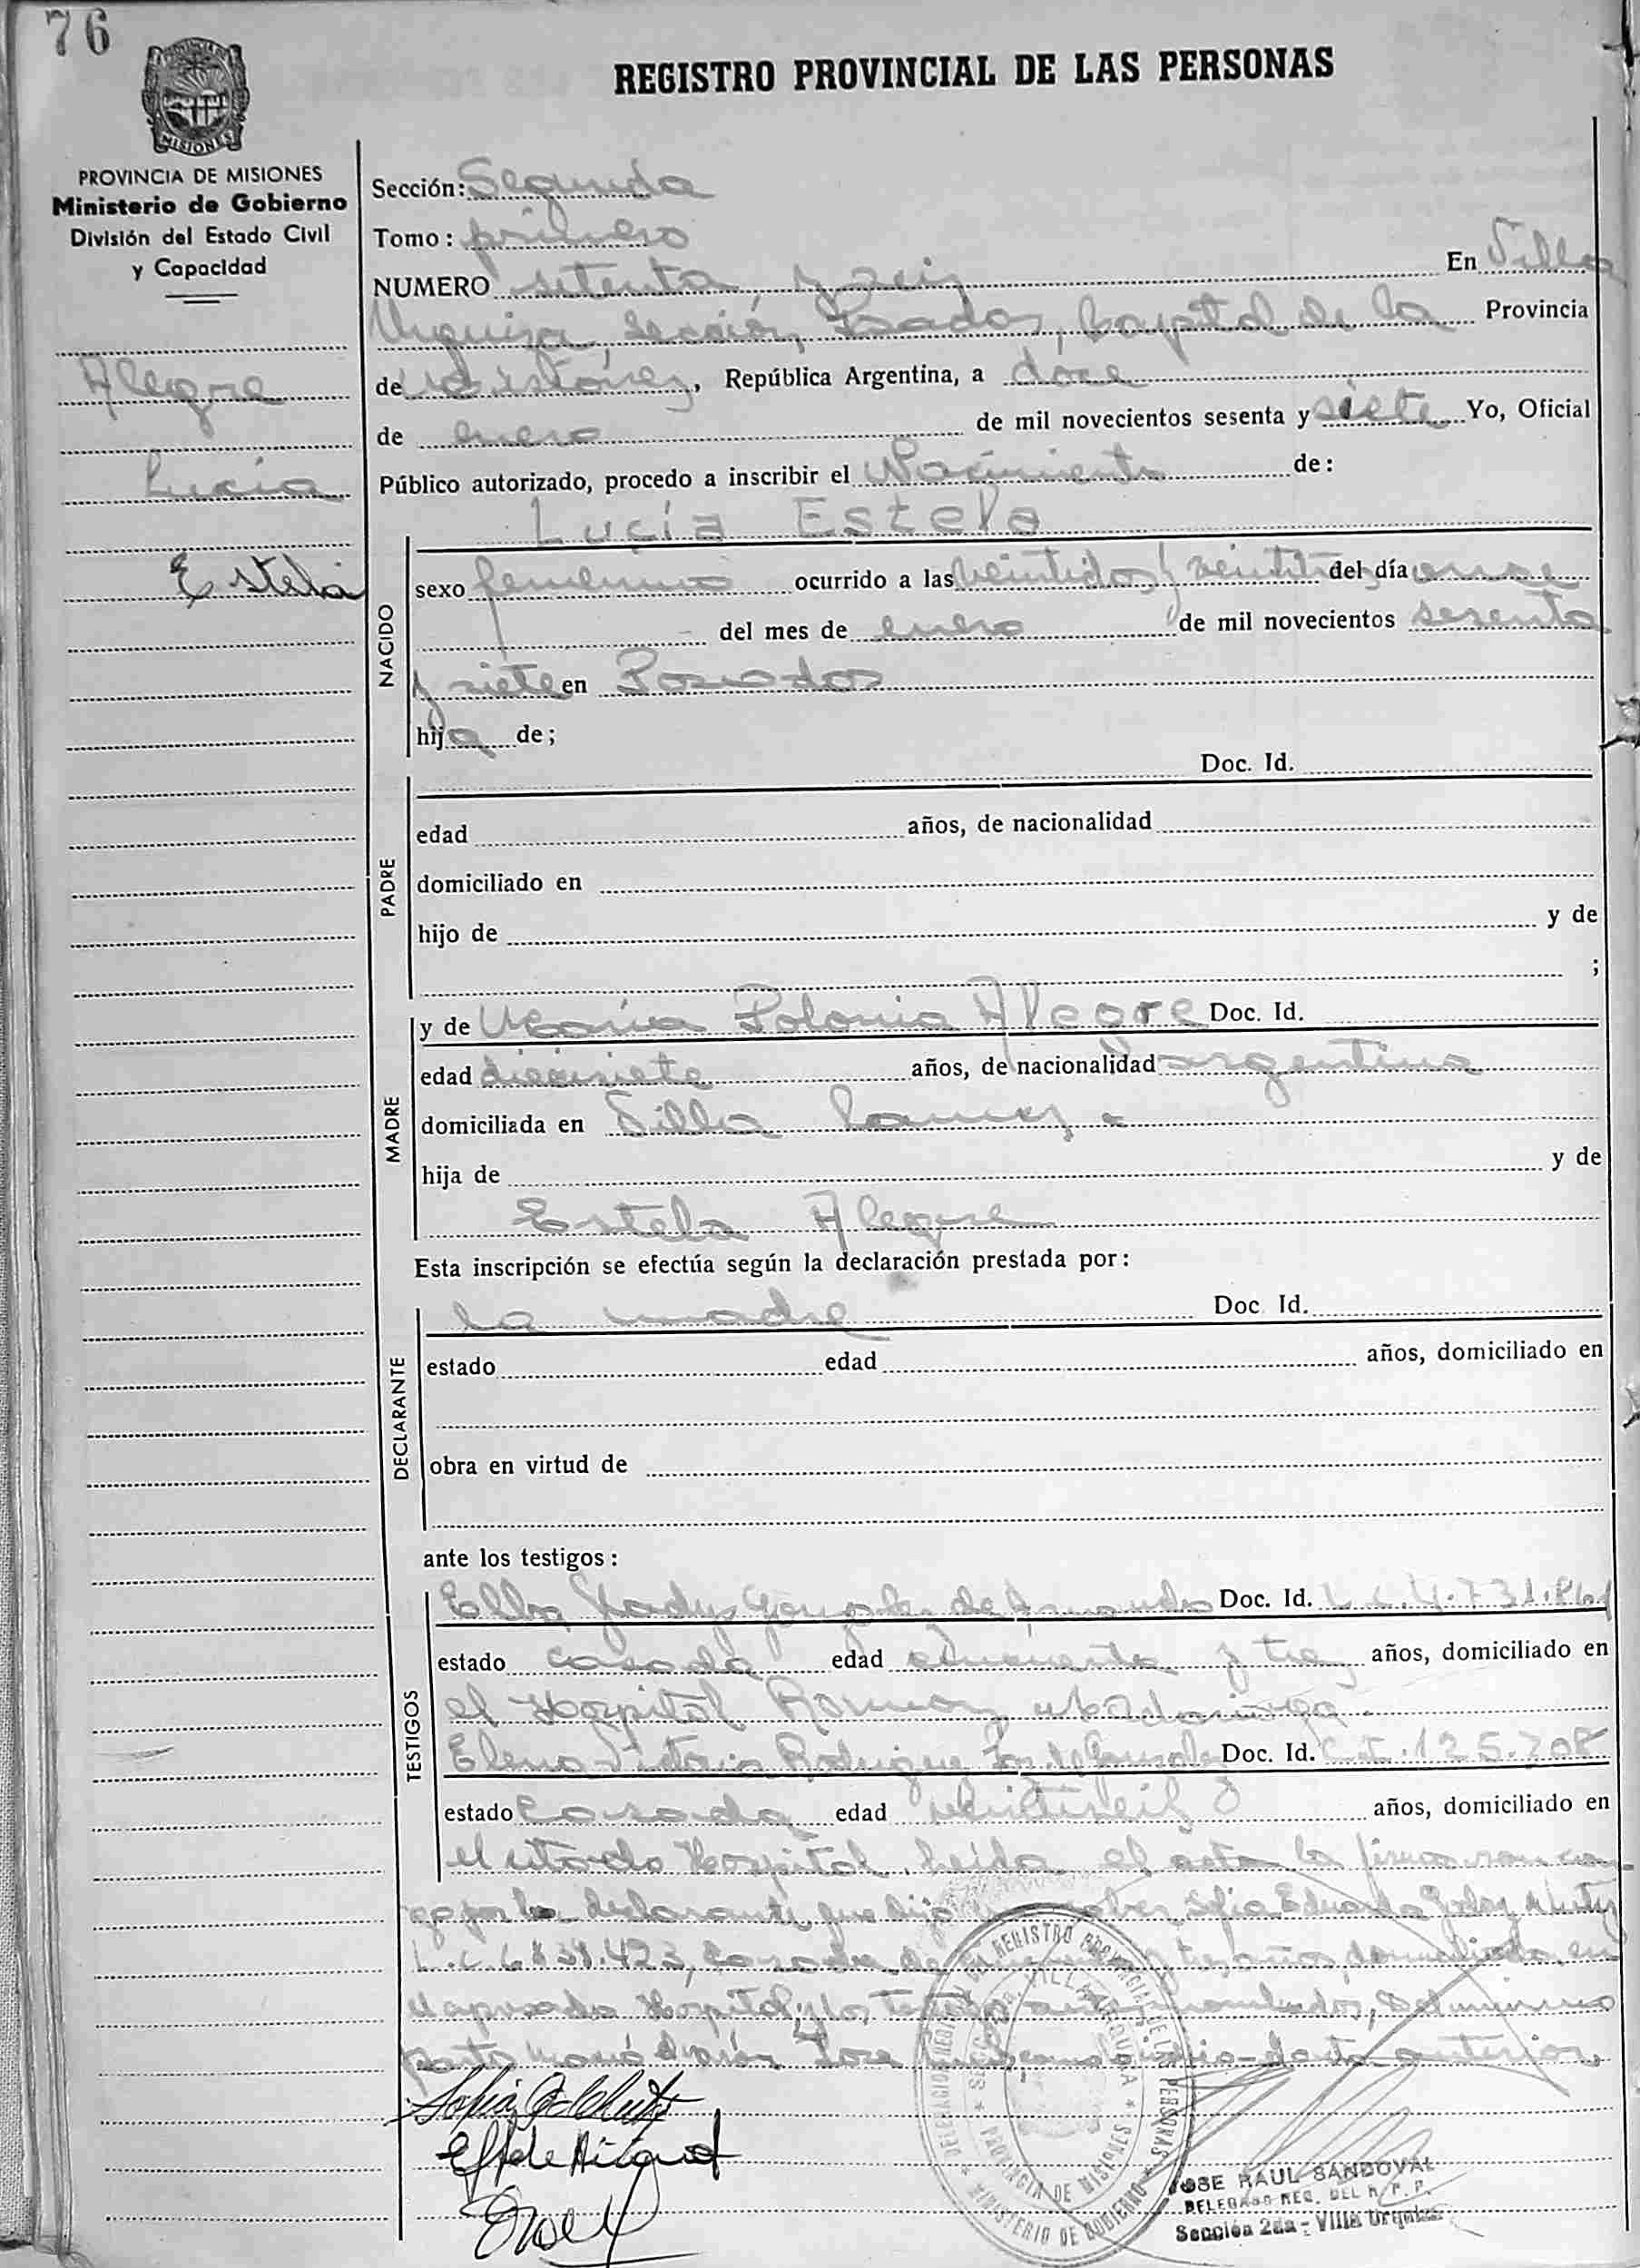 76
REGISTRO PROVINCIAL DE LAS PERSONAS
MISIONES
PROVINCIA DE MISIONES
Ministerio de Gobierno
División del Estado Civil
y Capacidad
Alegre
Lucia
Estela
Sección: Segunda
Tomo: primero
NUMERO setenta y seis En Villa
Urquiza, Sección Posadas, Capital de la Provincia
de Misiones, República Argentina, a doce
de enero de mil novecientos sesenta y siete Yo, Oficial
Público autorizado, procedo a inscribir el Nacimiento de:
Lucía Estela
NACIDO
sexo femenino ocurrido a las veintidos y veintitres del día once
del mes de enero de mil novecientos sesenta
y siete en Posadas
hija de;
PADRE
Doc. Id.
edad años, de nacionalidad
domiciliado en
hijo de y de
;
MADRE
y de María Polonia Alegre Doc. Id.
edad diecisiete años, de nacionalidad argentina
domiciliada en Villa
hija de y de
Estela Alegre
Esta inscripción se efectúa según la declaración prestada por:
DECLARANTE
la madre Doc Id.
estado edad años, domiciliado en
obra en virtud de
ante los testigos:
TESTIGOS
Gladys de Doc. Id. L.C. 4.731.861
estado casada edad cincuenta y tres años, domiciliado en
el Hospital Ramon Madariaga
Elena Victoria Rodriguez de Doc. Id. C.I. 125.708
estado Casada edad veintiseis años, domiciliado en
el citado Hospital. Leída el acta la firma
por la declarante que dijo no saber, Sofia Eduarda Godoy
L.C. casada, de y tres años, domiciliada en
el Hospital, y los testigos nombrados,
acta anterior.
DELEGACION DEL REGISTRO PROVINCIAL DE LAS PERSONAS
MINISTERIO DE GOBIERNO
VILLA URQUIZA
PROVINCIA DE MISIONES
JOSE RAUL SANDOVAL
DELEGADO REG. DEL R. P. P.
Sección 2da - Villa Urquiza